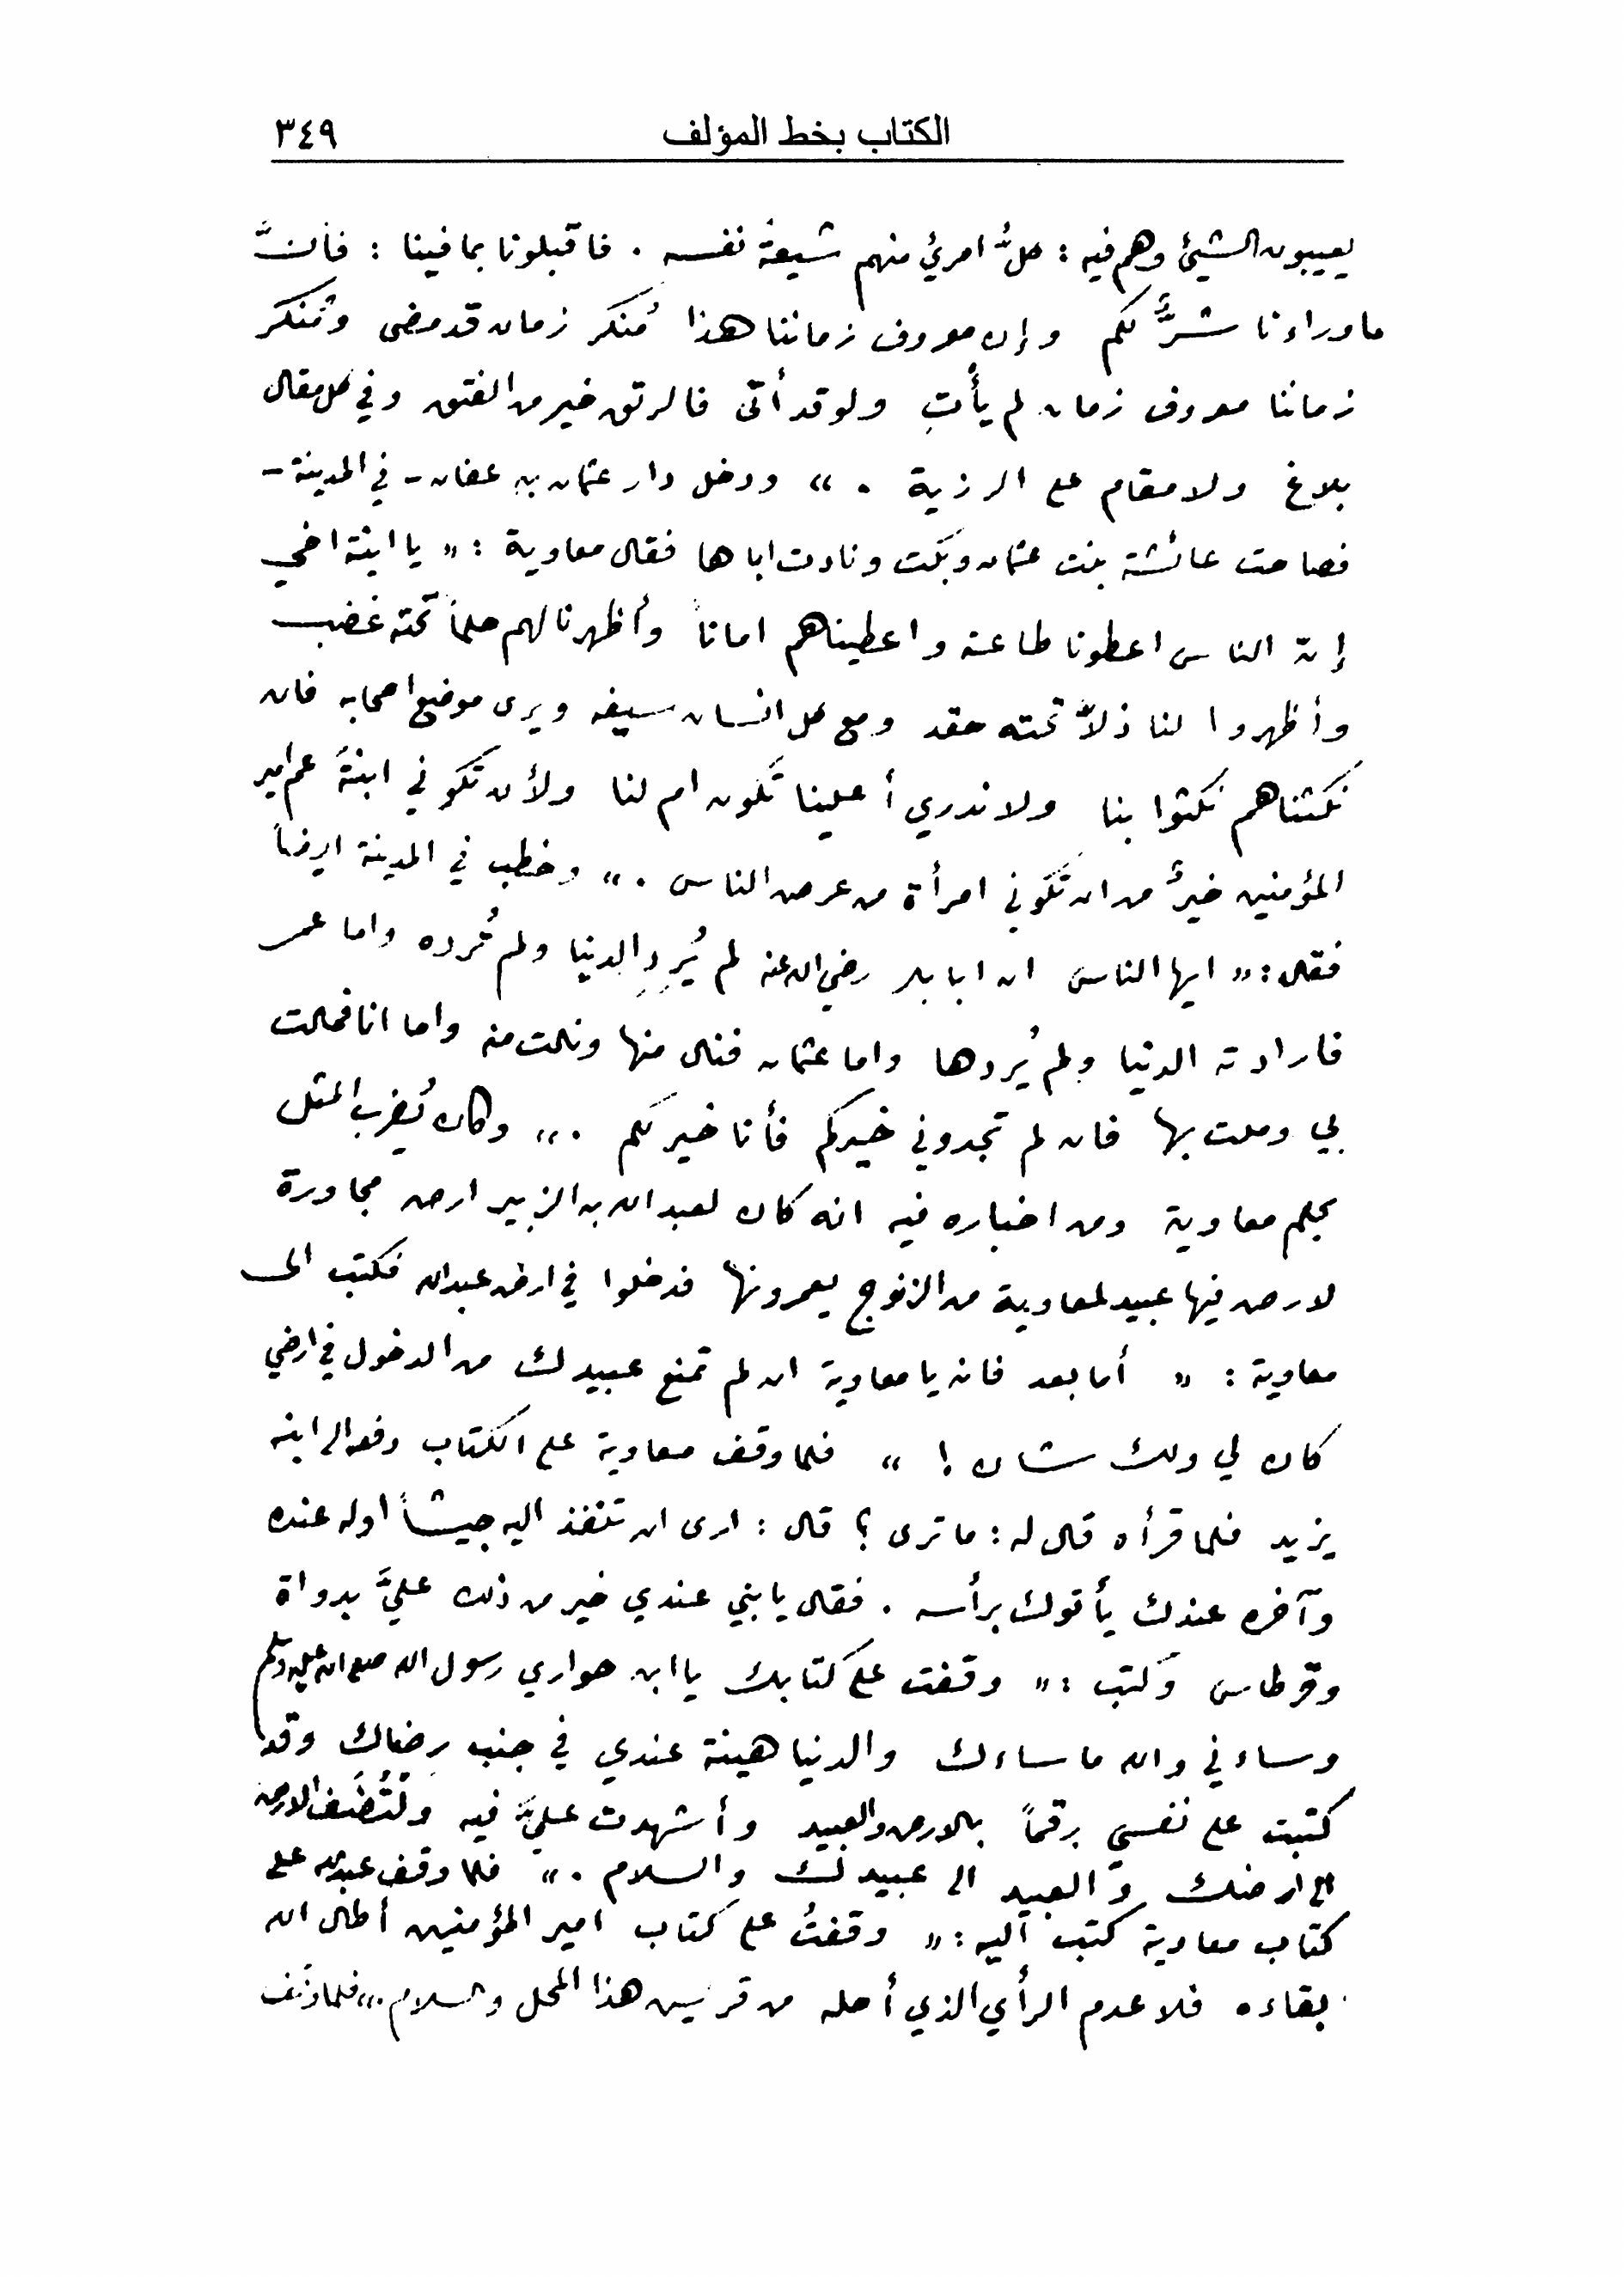 الكتاب بخط المؤلف ٣٤٩
يعيبون الشيئ وهم فيه : كلُّ امرئٍ منهم شيعةُ نفسه . فاقبلونا بما فينا : فأنَّ
ما وراءنا شرٌّ لكم وإن معروف زماننا هذا مُنكر زمان قد مضى ومُنكر
زماننا معروف زمان لم يأتِ ولو قد أتى فالرتق خير من الفتق وفي كل مقال
بلاغ ولا مقام على الرزية . » ودخل دار عثمان بن عفان - في المدينة -
فصاحت عائشة بنت عثمان وبكت ونادت اباها فقال معاوية : « يا ابنة اخي
إنّ الناس اعطونا طاعة واعطيناهم اماناً وأظهرنا لهم حلماً تحته غضب
وأظهروا لنا ذلاًّ تحته حقد ومع كل انسان سيفه ويرى موضع اصحابه فان
نكثناهم نكثوا بنا ولا ندري أعلينا تكون ام لنا ولأن تكوني ابنةَ عم امير
المؤمنين خيرٌ من ان تكوني امرأة من عرض الناس . » وخطب في المدينة ايضاً
فقال : « ايها الناس ان ابا بكر رضي الله عنه لم يُرِدِ الدنيا ولم تُرده واما عمر
فارادته الدنيا ولم يُردها واما عثمان فنال منها ونالت منه واما انا فمالت
بي وملت بها فان لم تجدوني خيركم فأنا خير لكم . » وكان يُضرب المثل
بحلم معاوية ومن اخباره فيه انه كان لعبد الله بن الزبير ارض مجاورة
لارض فيها عبيد لمعاوية من الزنوج يعمرونها فدخلوا في ارض عبد الله فكتب الى
معاوية : « أما بعد فانه يا معاوية ان لم تمنع عبيدك من الدخول في ارضي
كان لي ولك شان ! » فلما وقف معاوية على الكتاب دفعه الى ابنه
يزيد فلما قرأه قال له : ما ترى ؟ قال : ارى ان تنفذ اليه جيشاً اوله عنده
وآخره عندك يأتوك برأسه . فقال يا بني عندي خير من ذلك عليَّ بدواة
وقرطاس وكتب : « وقفت على كتابك يا ابن حواري رسول الله صلى الله عليه وسلم
وساءني والله ما ساءك والدنيا هينة عندي في جنب رضاك وقد
كتبت على نفسي رقماً بالارض والعبيد وأشهدت عليَّ فيه ولْتُضَف الارض
الى ارضك والعبيد الى عبيدك والسلام . » فلما وقف عبد الله على
كتاب معاوية كتب اليه : « وقفتُ على كتاب امير المؤمنين أطال الله
بقاءه فلا عدم الرأي الذي أحله من قريش هذا المحل والسلام . » فلما وقف